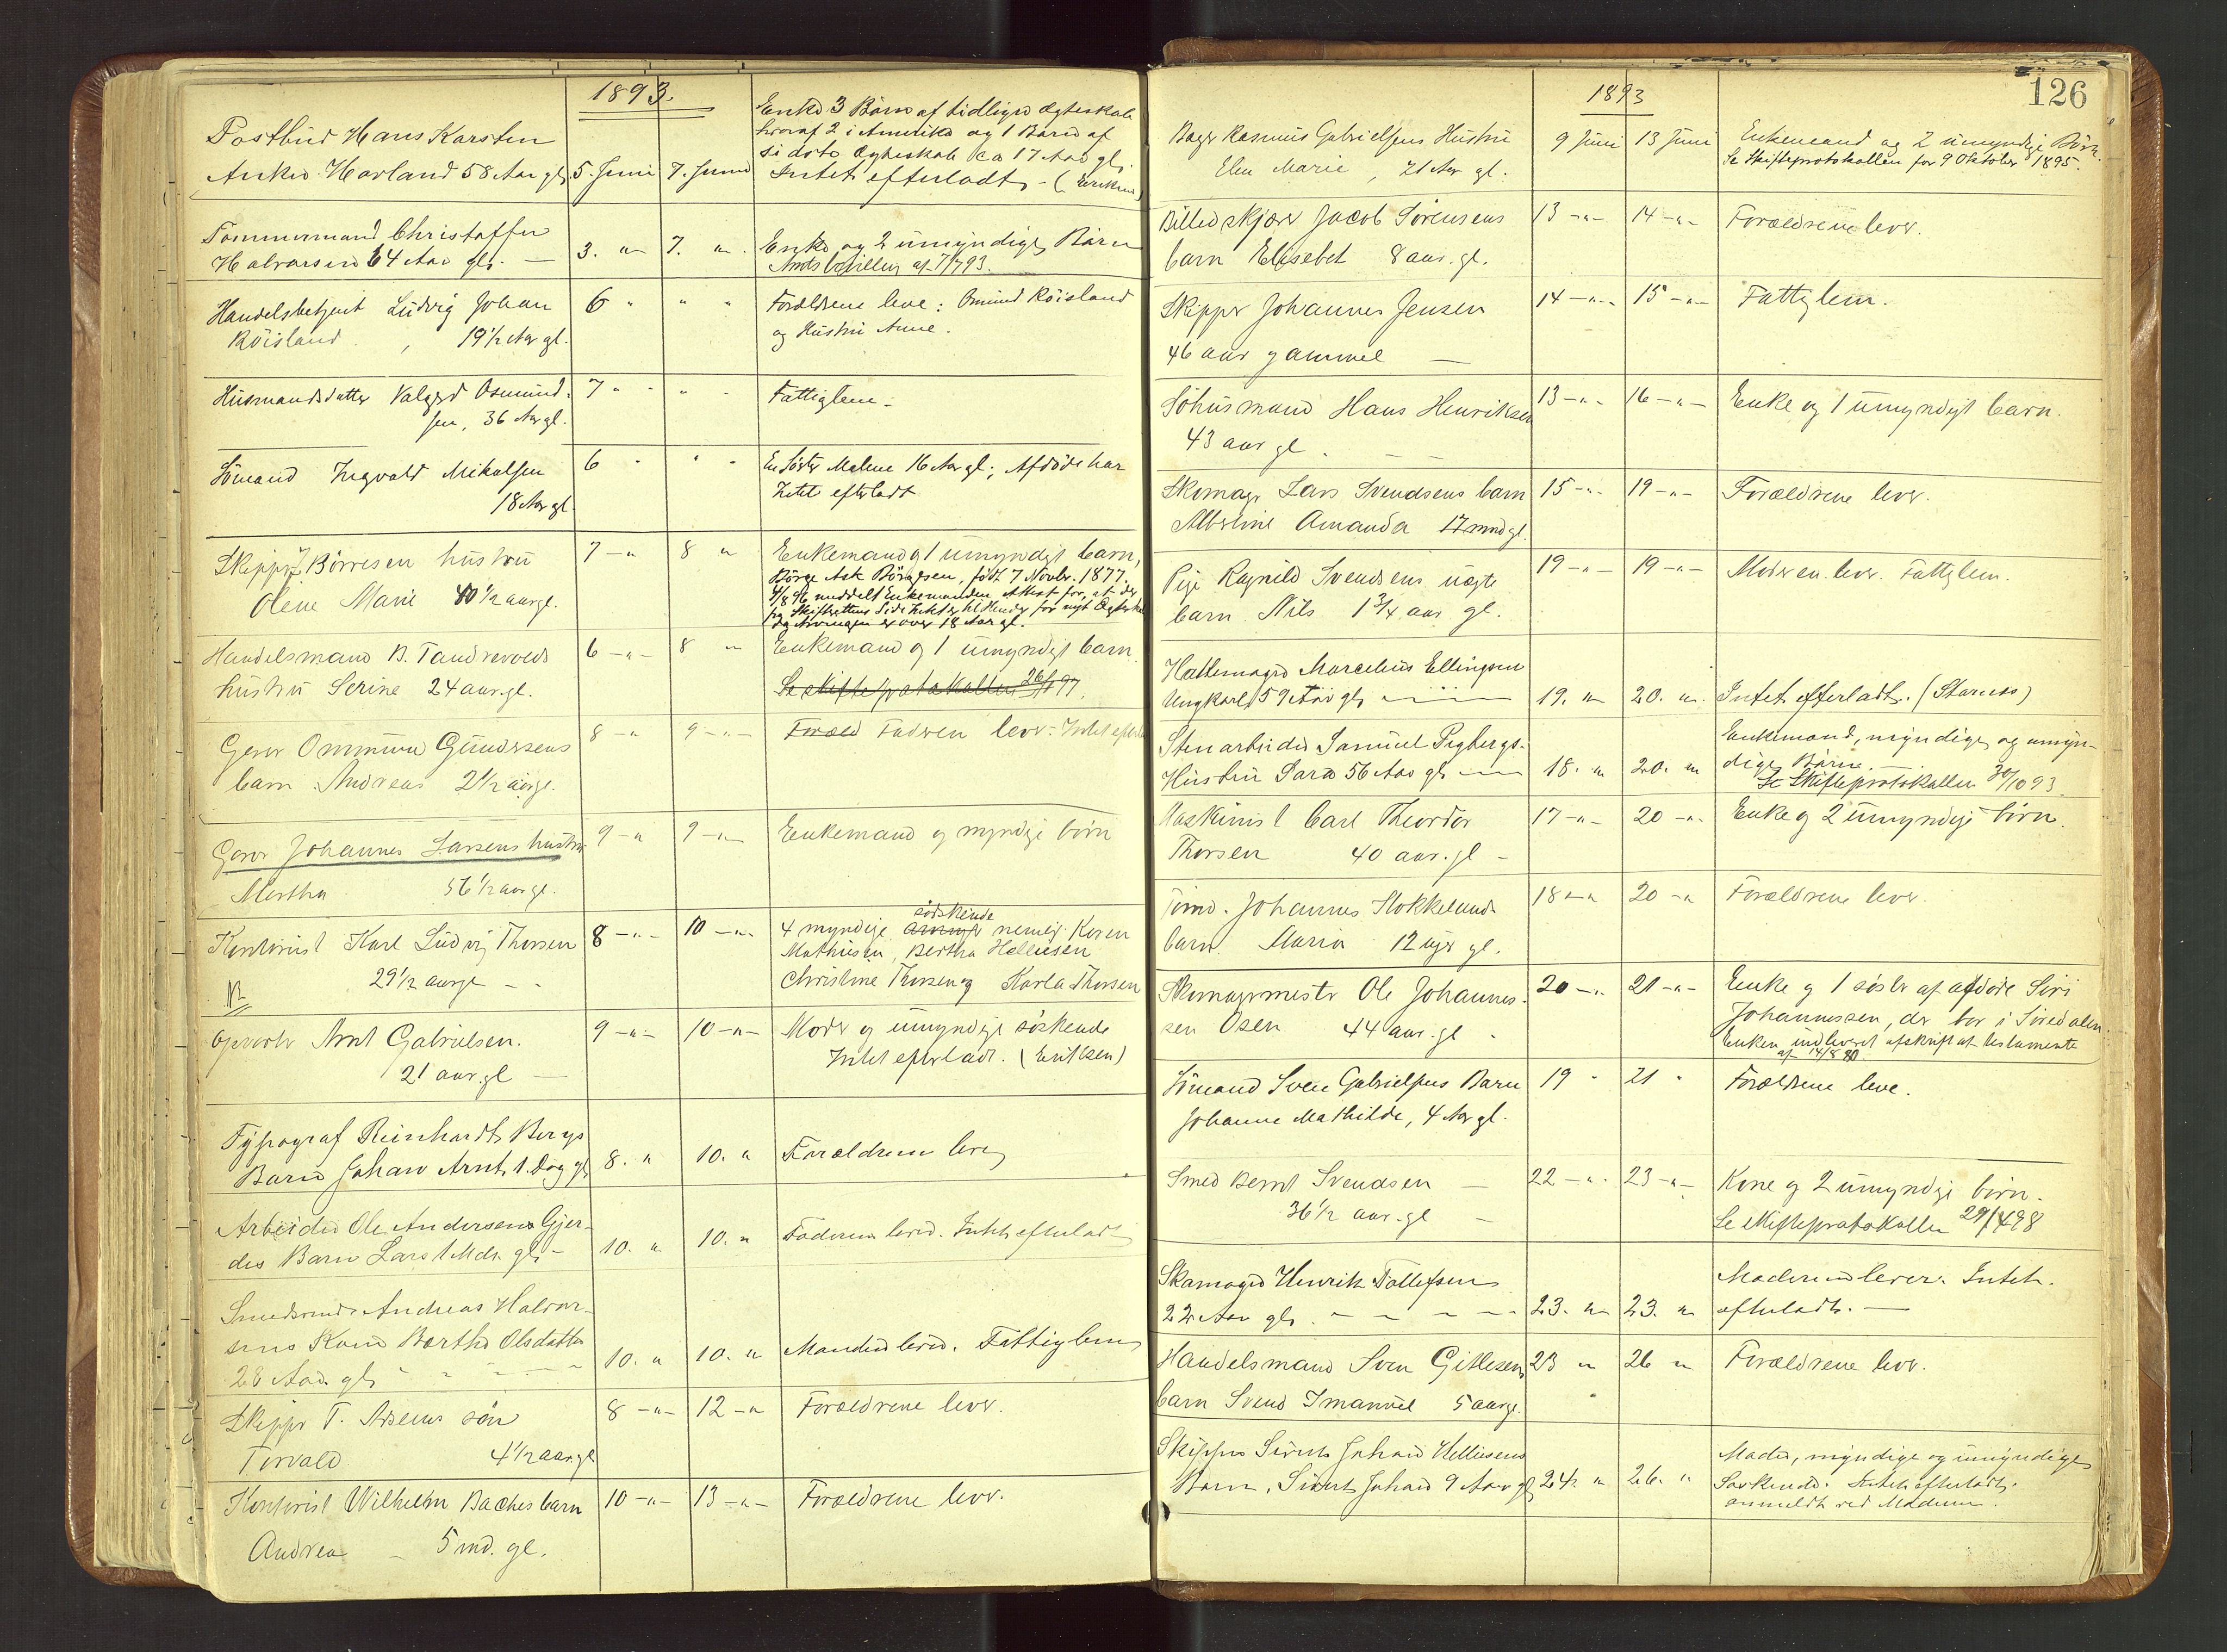 1893.
Postbud Hans Karsten
Anker Havland 58 Aar gl. 5. Juni 7. Juni
Enke 3 Børn af tidligere Ægteskab
hvoraf 2 i Amerika og 1 Barn af
sidste Ægteskab ca 17 Aar gl.
Intet efterladt -
Tømmermand Christoffer
Halvorsen 64 Aar gl. — 3. " 7. "
Enke og 2 umyndige Børn
Handelsbetjent Ludvig Johan
Röisland , 19 1/2 Aar gl.
6 " " "
Forældrene leve: Osmund Röisland
og Hustru Anne.
Husmandsdatter Valgerd Osmund-
sen, 36 Aar gl.
7 " " "
Fattiglem.
Sömand Ingvald Mikalsen
18 Aar gl.
6 " " "
En Søster Malene 16 Aar gl.; Afdøde har
Intet efterladt
Skipper Börresen hustru
Olene Marie 40 1/2 aar gl.
7 — " 8 "
Enkemand og 1 umyndigt barn,
Börge Ask Börgesen, født 7 Novbr. 1877.
4/8 96 meddelt Enkemanden Attest for, at der
fra Skifterettens Side Intet er til Hinder for nyt Ægteskab
da Arvingen er over 18 Aar gl.
Handelsmand B. Tandrevolds
hustru Serine 24 aar.gl.
6 — " — 8 "
Enkemand og 1 umyndigt barn
Se skifteprotokollen 26/1 97.
Gerver Ommund Gundersens
barn Andreas 2 1/2 aar gl.
8 — " 9 — " —
Foræld Faderen lever. Intet efterl
Garver Johannes Larsens hustru
Martha 56 1/2 aar gl.
9 — " 9 — " —
Enkemand og myndige börn
Kontorist Karl Ludvig Thorsen
29 1/2 aar gl - -
8 — " — 10 — " —
södskende
4 myndige nemlig Karen
Mathisen, Bertha Helliesen
Christine Thorsen og Karla Thorsen
Opvarter Arnt Gabrielsen.
21 aar.gl —
9 — " — 10 — " —
Moder og umyndige söskende
Intet efterladt. (Eriksen)
Typograf Reinhardt Bergs
Barn Johan Arnt 1 Dag gl
8. " 10. "
Forældrene leve
Arbeider Ole Andersens Gjer-
des Barn Lars 1 Md. gl. —
10. " 10. "
Faderen lever. Intet efterladt
Smedsvend Andreas Halvor-
sens Kone Berthe Olsdatter
28 Aar gl.
10. " 10. "
Manden lever. Fattiglem
Skipper T. Asens sön
Torvald 4 1/2 aar.gl
8 — " — 12 — "
Forældrene lever.
Kontorist Wilhelm Baches barn
Andrea — 5 md. gl.
10 — " — 13 — " —
Forældrene lever.
126
1893
Bager Rasmus Gabrielsens Hustru
Elen Marie , 71 Aar gl.
9 Juni 13 Juni
Enkemand og 2 umyndige Börn.
Se Skifteprotokollen for 9 Oktober 1895.
Billedskjærer Jacob Sörensens
barn Elisebet 8 aar. gl.
13 — " — 14 — " —
Forældrene lever.
Skipper Johannes Jensen
46 aar gammel —
14 — " — 15 — " —
Fattiglem.
Söhusmand Hans Henriksen
43 aar gl.
13 — " — 16 — " —
Enke og 1 umyndigt barn.
Skomager Lars Svendsens barn
Albertine Amanda 17 mnd gl.
15 — " — 19 — " —
Forældrene lever.
Pige Ragnild Svendsens uægte
barn Nils 1 3/4 aar gl.
19 — " — 19 — " —
Moderen lever. Fattiglem.
Hattemager Marcelius Ellingsen
Ungkarl 59 Aar gl.
19. " 20. "
Intet efterladt.
Stenarbeider Samuel Pigbergs
Hustru Sara 56 Aar gl. —
18. " 20. "
Enkemand, myndige og umyn-
dige Børn.
Se Skifteprotokollen 30/10 93.
Maskinist Carl Theordor
Thorsen 40 aar.gl —
17 — " — 20 — " —
Enke og 2 umyndige börn.
Tömd. Johannes Stokkelands
barn Maria 12 uger gl.
18 — " 20 — "
Forældrene lever.
Skomagermester Ole Johannes-
sen Osen 44 aar.gl -
20 — " 21 — " —
Enke og 1 söster af afdöde Siri
Johannessen, der bor i Siredalen.
Enken indleveret afskrift af testamente
af 14/8 80.
Sömand Sven Gabrielsens Barn
Johanne Mathilde, 4 Aar gl.
19 " 21 "
Forældrene leve.
Smed Bernt Svendsen —
36 1/2 aar.gl —
22 — " — 23 — " —
Kone og 2 umyndige börn.
Se skifteprotokollen 29/4 98
Skomager Henrik Tollefsen
22 Aar gl.
23. " 23. "
Moderen lever. Intet
efterladt. —
Handelsmand Sven Gitlesens
barn Svend Imanuel 5 aar gl.
23 " 26 "
Forældrene lever.
Skipper Sivert Johan Helliesens
Barn, Sivert Johan 9 Aar gl
24. " 26. "
Moder, myndige og umyndige
Søskende. Intet efterladt.
anmeldt ved Moderen.